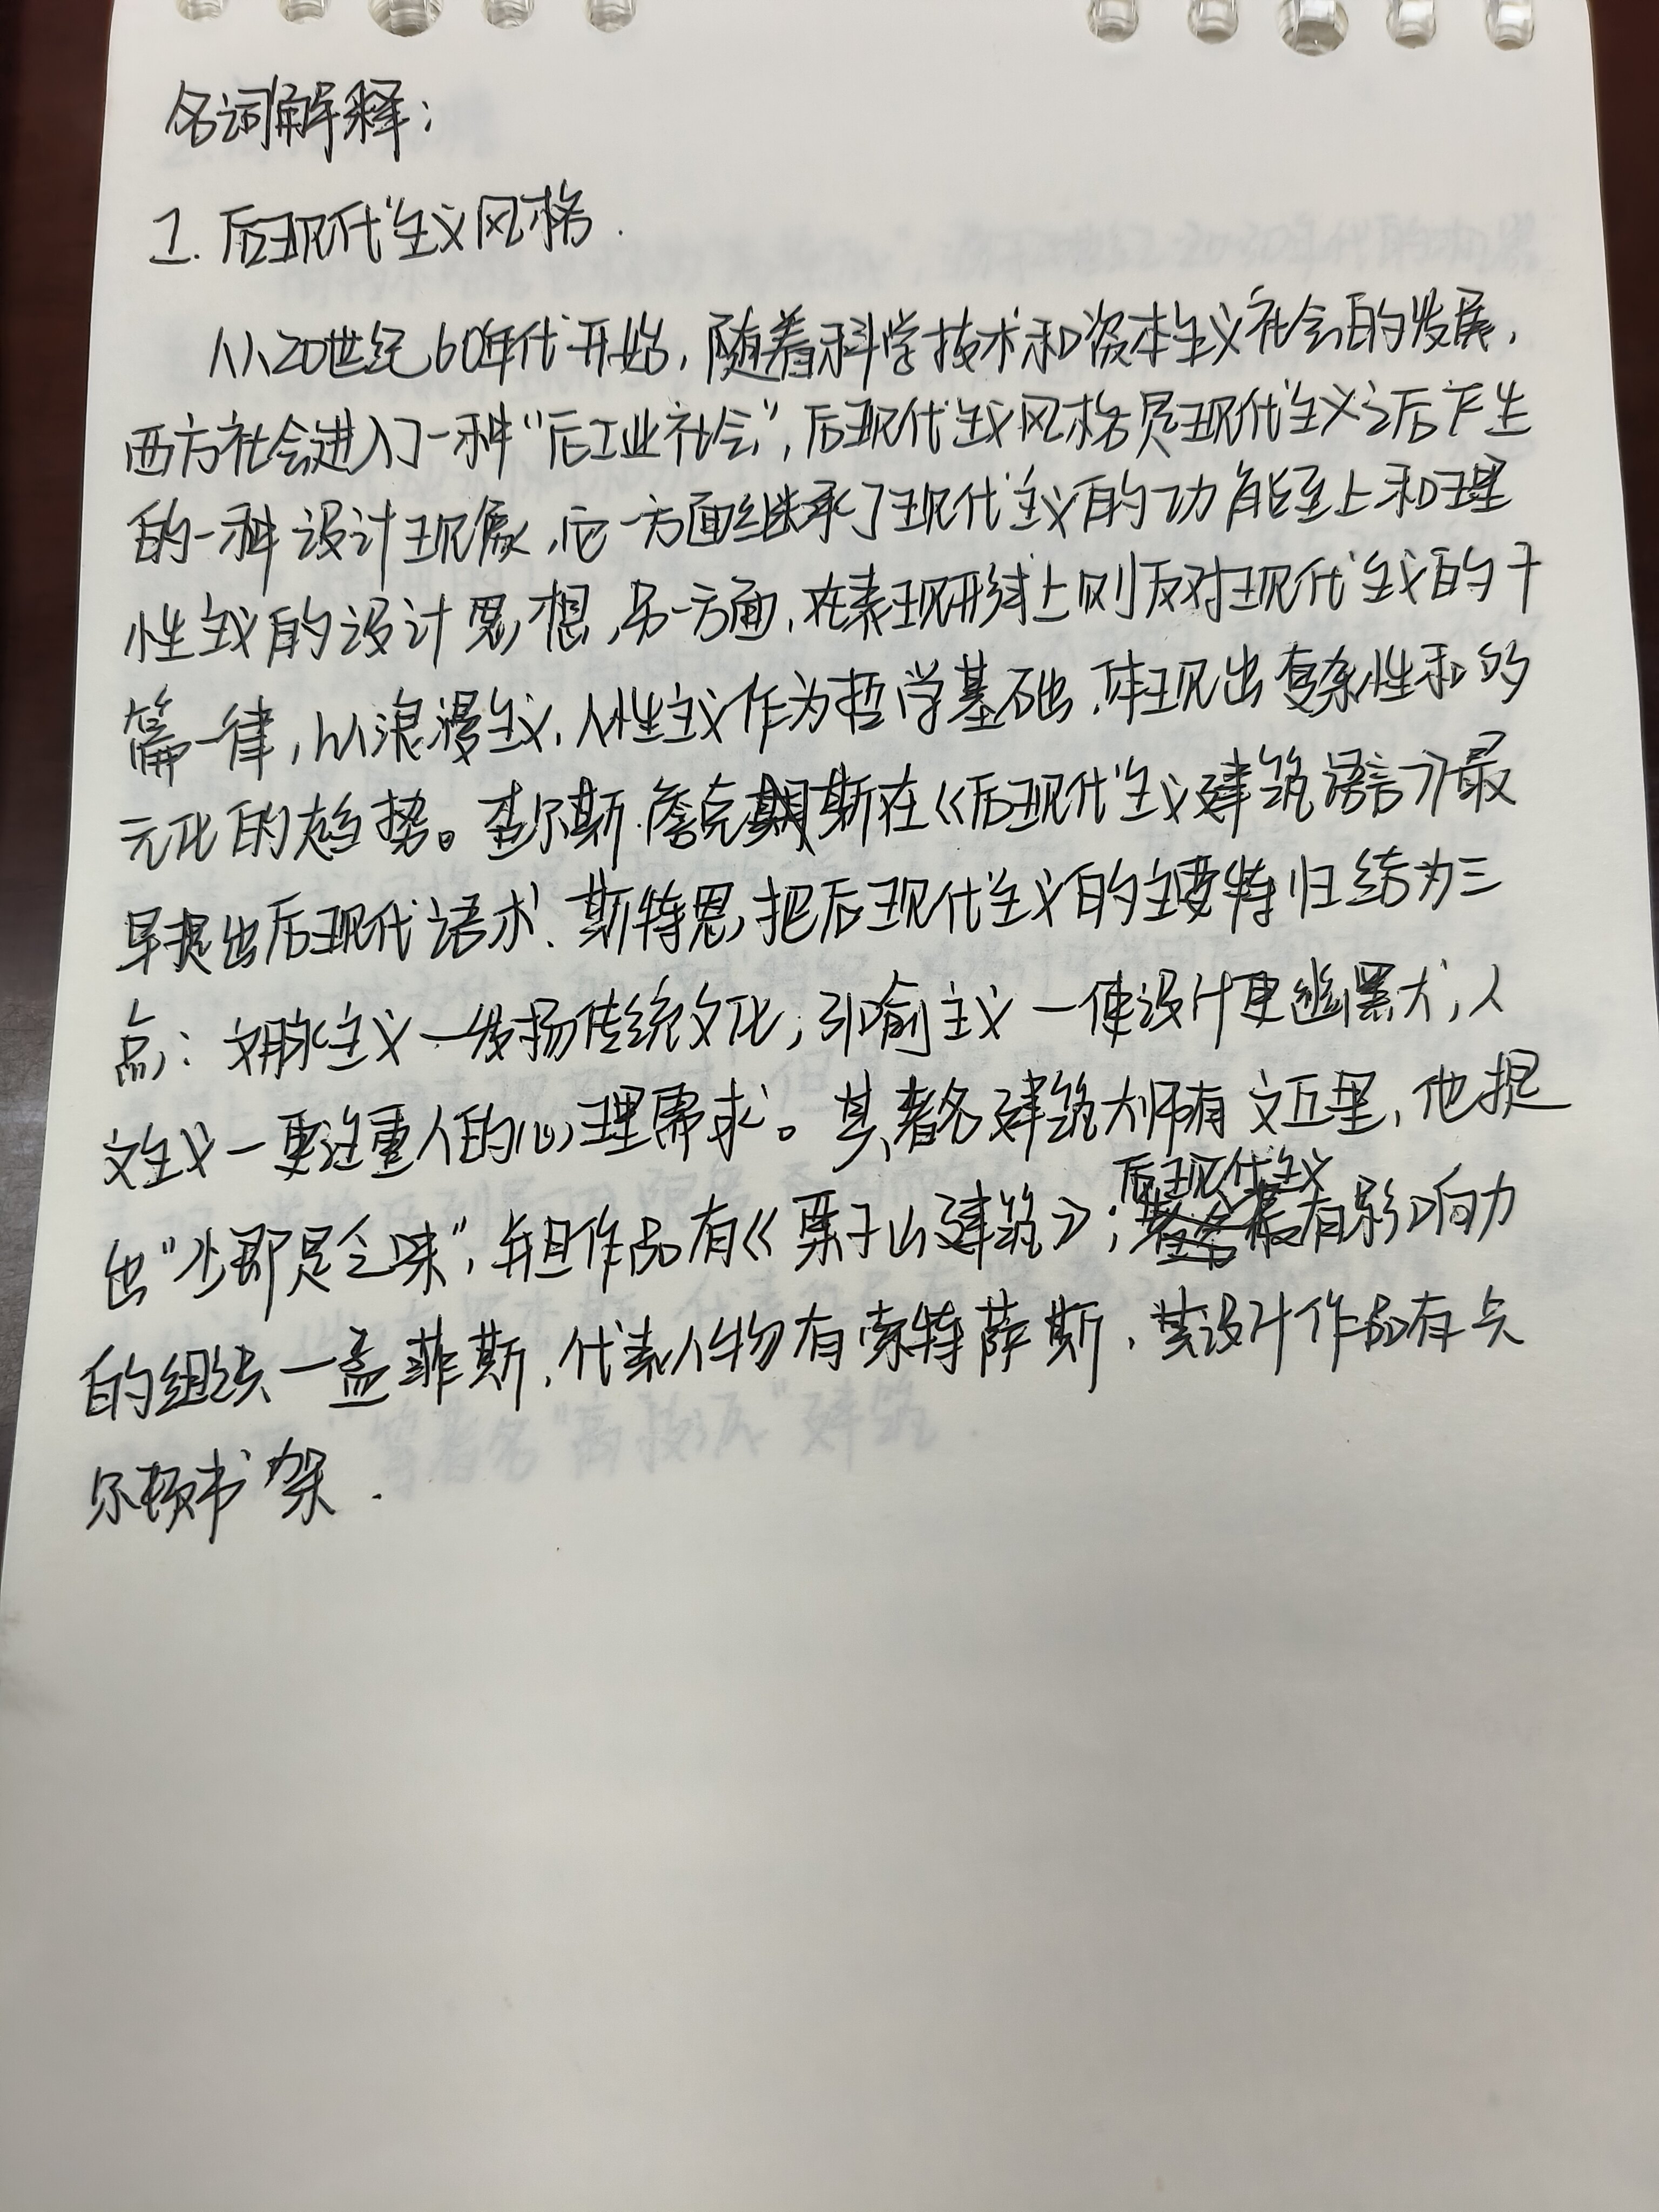 名词解释：
1. 后现代主义风格.
从20世纪60年代开始，随着科学技术和资本主义社会的发展，
西方社会进入了一种“后工业社会”，后现代主义风格是现代主义之后产生
的一种设计现象，它一方面继承了现代主义的功能至上和理
性主义的设计思想，另一方面，在表现形式上则反对现代主义的千
篇一律，以浪漫主义、人性主义作为哲学基础，体现出复杂性和多
元化的趋势。查尔斯·詹克斯在《后现代主义建筑语言》最
早提出后现代语术、斯特恩，把后现代主义的主要特归结为三
点：文脉主义—发扬传统文化，引喻主义—使设计更幽默大，人
文主义—更注重人的心理需求。其著名建筑大师有文丘里，他提
出“少即是乏味”，并且作品有《栗子山建筑》；后现代主义最有影响力
的组织—孟菲斯，代表人物有索特萨斯，其设计作品有卡
尔顿书架.